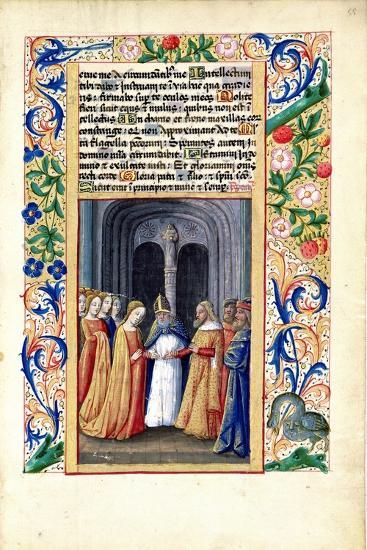 eriue me a circundantibus me Intellectum
tibi dabo et instruam te in via hac qua gradie
ris: firmabo super te oculos meos Nolite
fieri sicut equus et mulus: quibus non est in
tellectus In chamo et freno maxillas eorum
constringe: qui non approximant ad te Mul
ta flagella peccatorum: Sperantes autem in
domino misericordia circundabit Letamini in do
mino et exultate iusti: Et gloriamini omnes
recti corde Gloria patri et filio: et spiritui sancto
Sicut erat in principio et nunc et semper